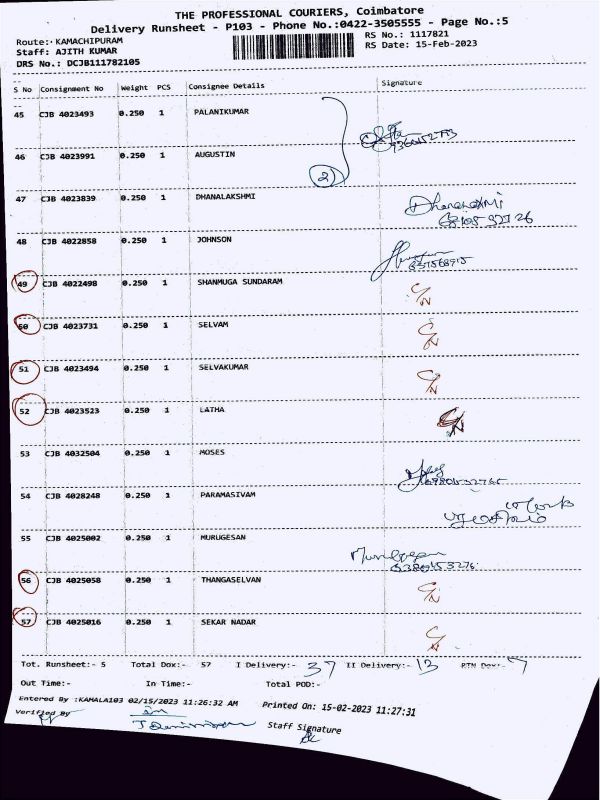 THE PROFESSIONAL COURIERS, Coimbatore
Delivery Runsheet - P103 - Phone No.:0422-3505555 - Page No.:5
Route: KAMACHIPURAM
RS No.: 1117821
Staff: AJITH KUMAR
RS Date: 15-Feb-2023
DRS No.: DCJB111782105
S No Consignment No Weight PCS Consignee Details Signature
45 CJB 4023493 0.250 1 PALANIKUMAR
46 CJB 4023991 0.250 1 AUGUSTIN
2
47 CJB 4023839 0.250 1 DHANALAKSHMI
48 CJB 4022858 0.250 1 JOHNSON
49 CJB 4022498 0.250 1 SHANMUGA SUNDARAM C/N
50 CJB 4023731 0.250 1 SELVAM C/N
51 CJB 4023494 0.250 1 SELVAKUMAR C/N
52 CJB 4023523 0.250 1 LATHA C/N
53 CJB 4032504 0.250 1 MOSES
54 CJB 4028248 0.250 1 PARAMASIVAM
55 CJB 4025002 0.250 1 MURUGESAN
Murugesan
56 CJB 4025058 0.250 1 THANGASELVAN C/N
57 CJB 4025016 0.250 1 SEKAR NADAR C/N
Tot. Runsheet:- 5 Total Dox:- 57 I Delivery:- 37 II Delivery:- 13 RTN Dox:- 7
Out Time:- In Time:- Total POD:-
Entered By :KAMALA103 02/15/2023 11:26:32 AM Printed On: 15-02-2023 11:27:31
Verified By Staff Signature